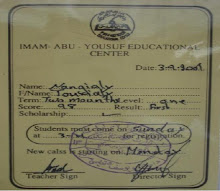 IMAM-ABU-YOUSUF EDUCATIONAL
CENTER
Date:
Name:
F/Name:
Term: Two mounths Level: one
Score: 98 Result: Post
Scholarship:
Students must come on Sunday
at for registration.
New calss is starting on Monday
Teacher Sign Director Sign